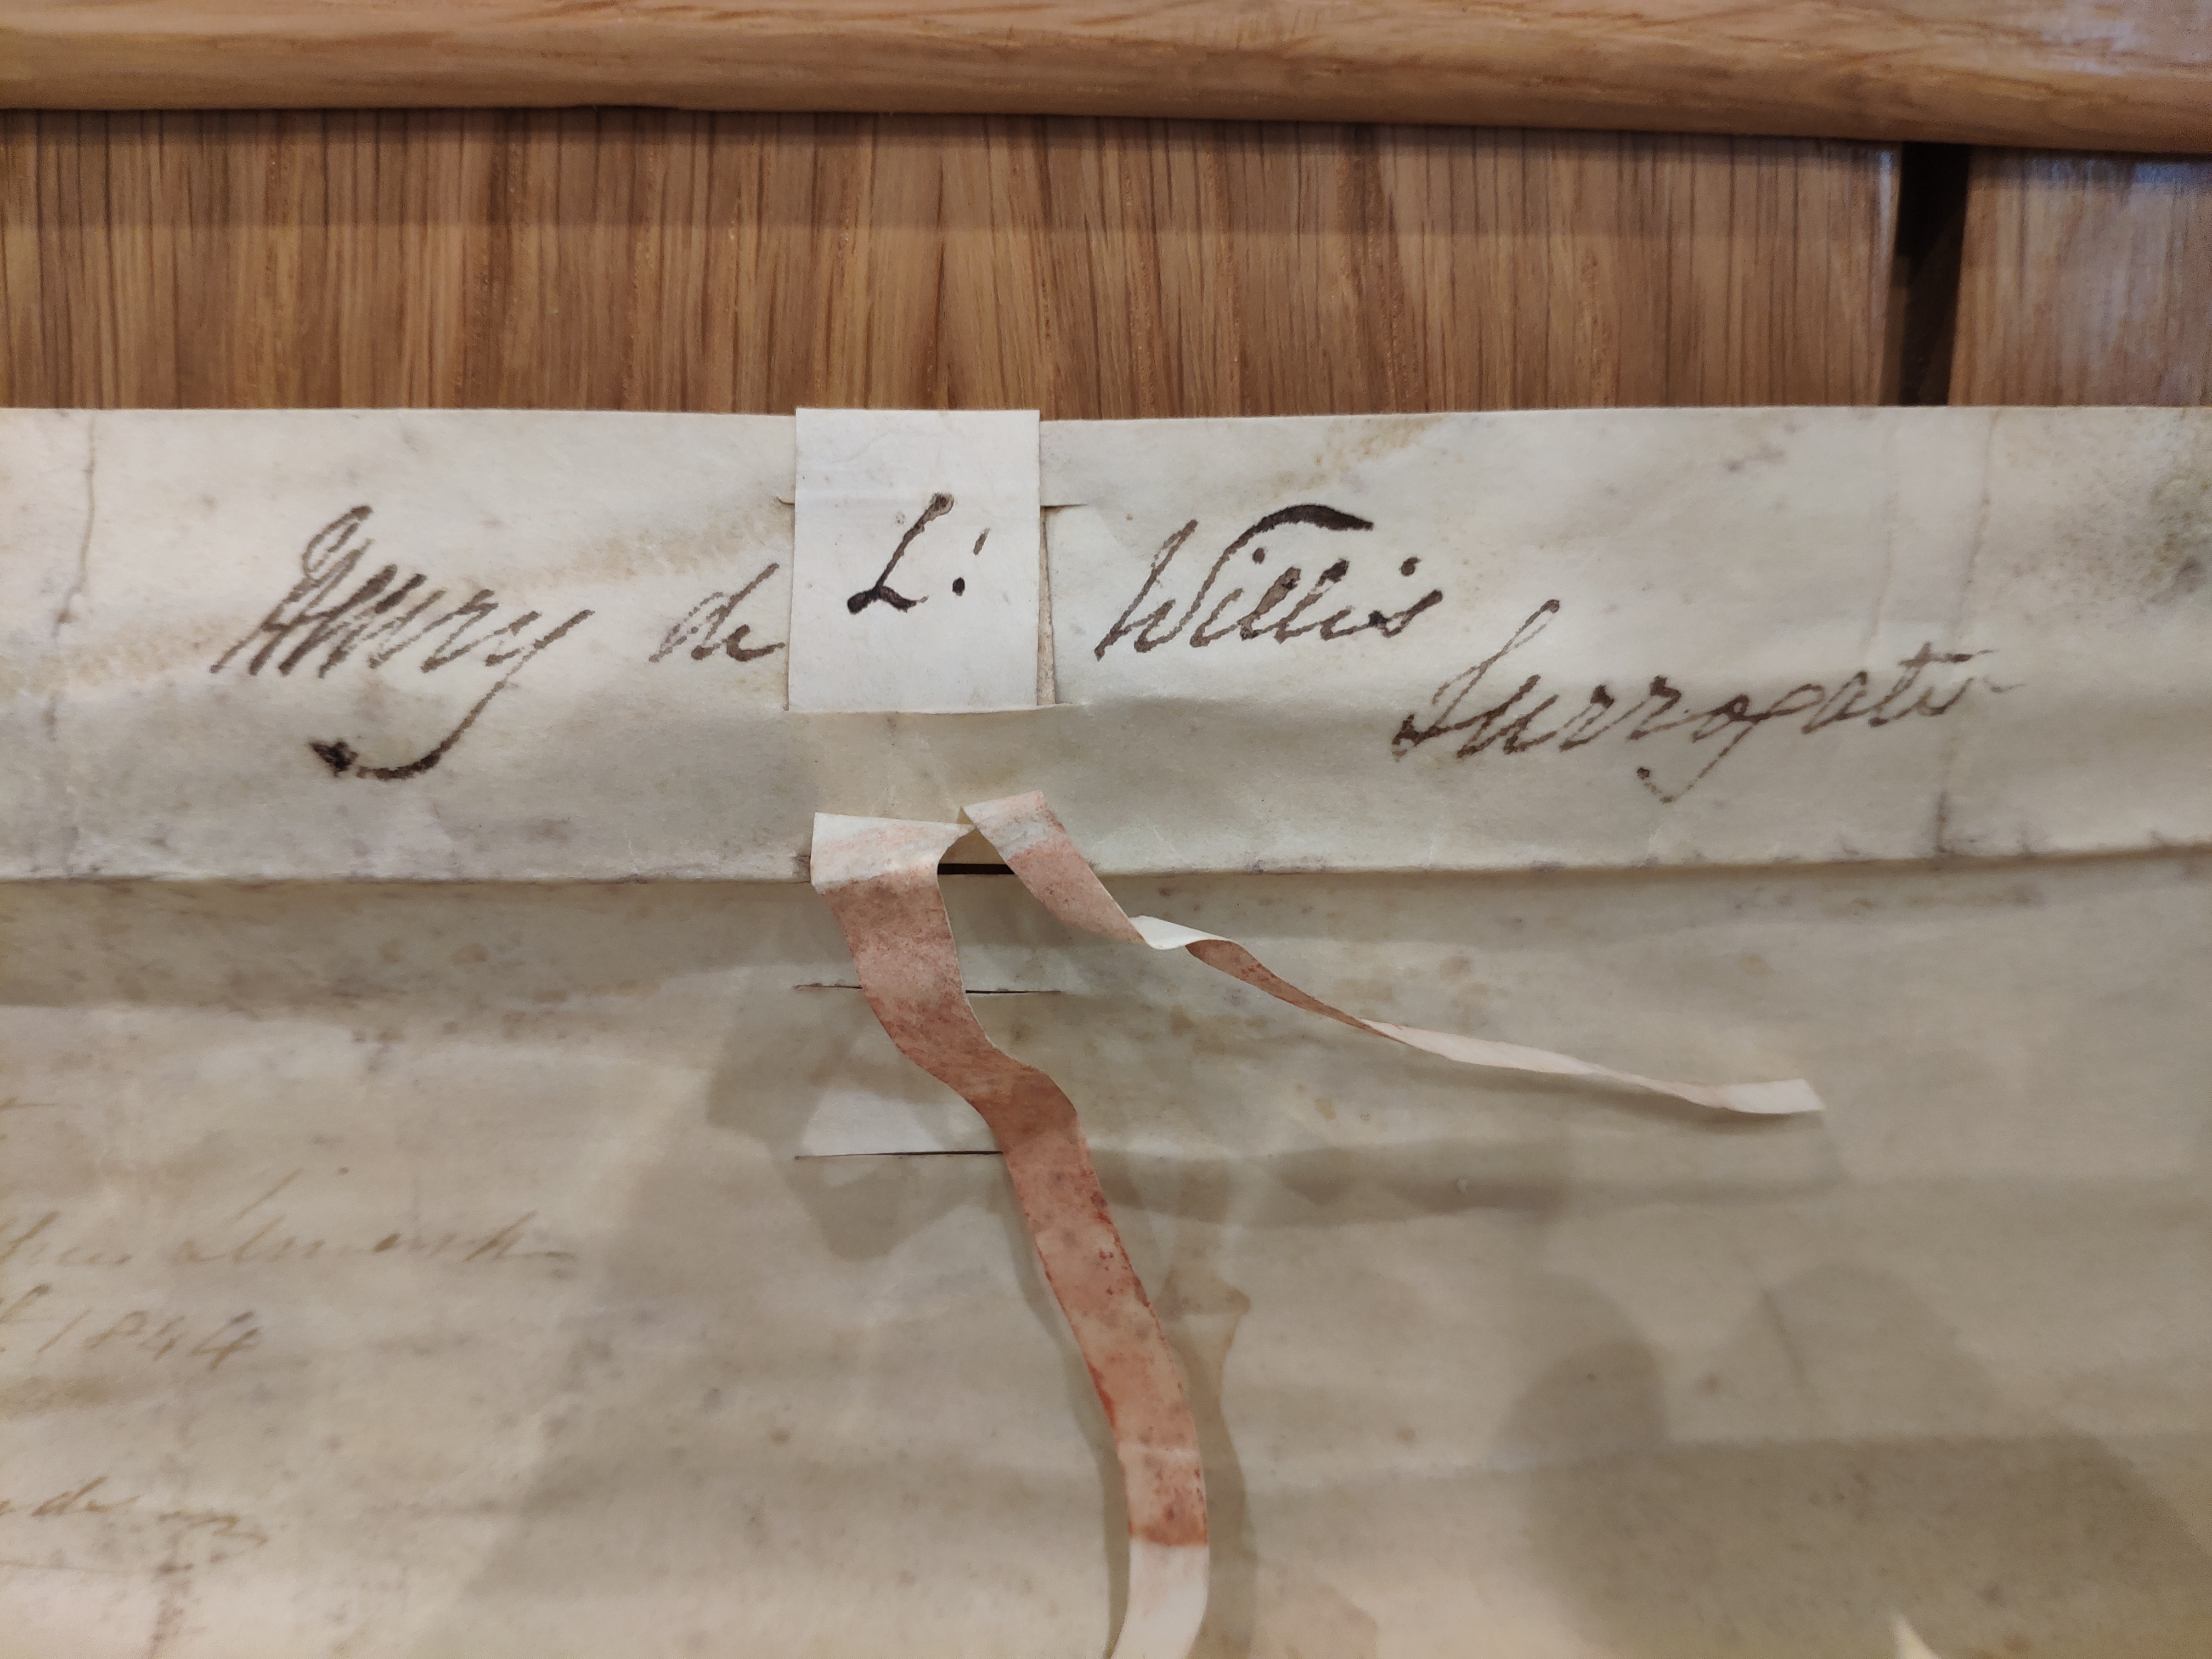 Henry de L: Willis
Surrogate
1844